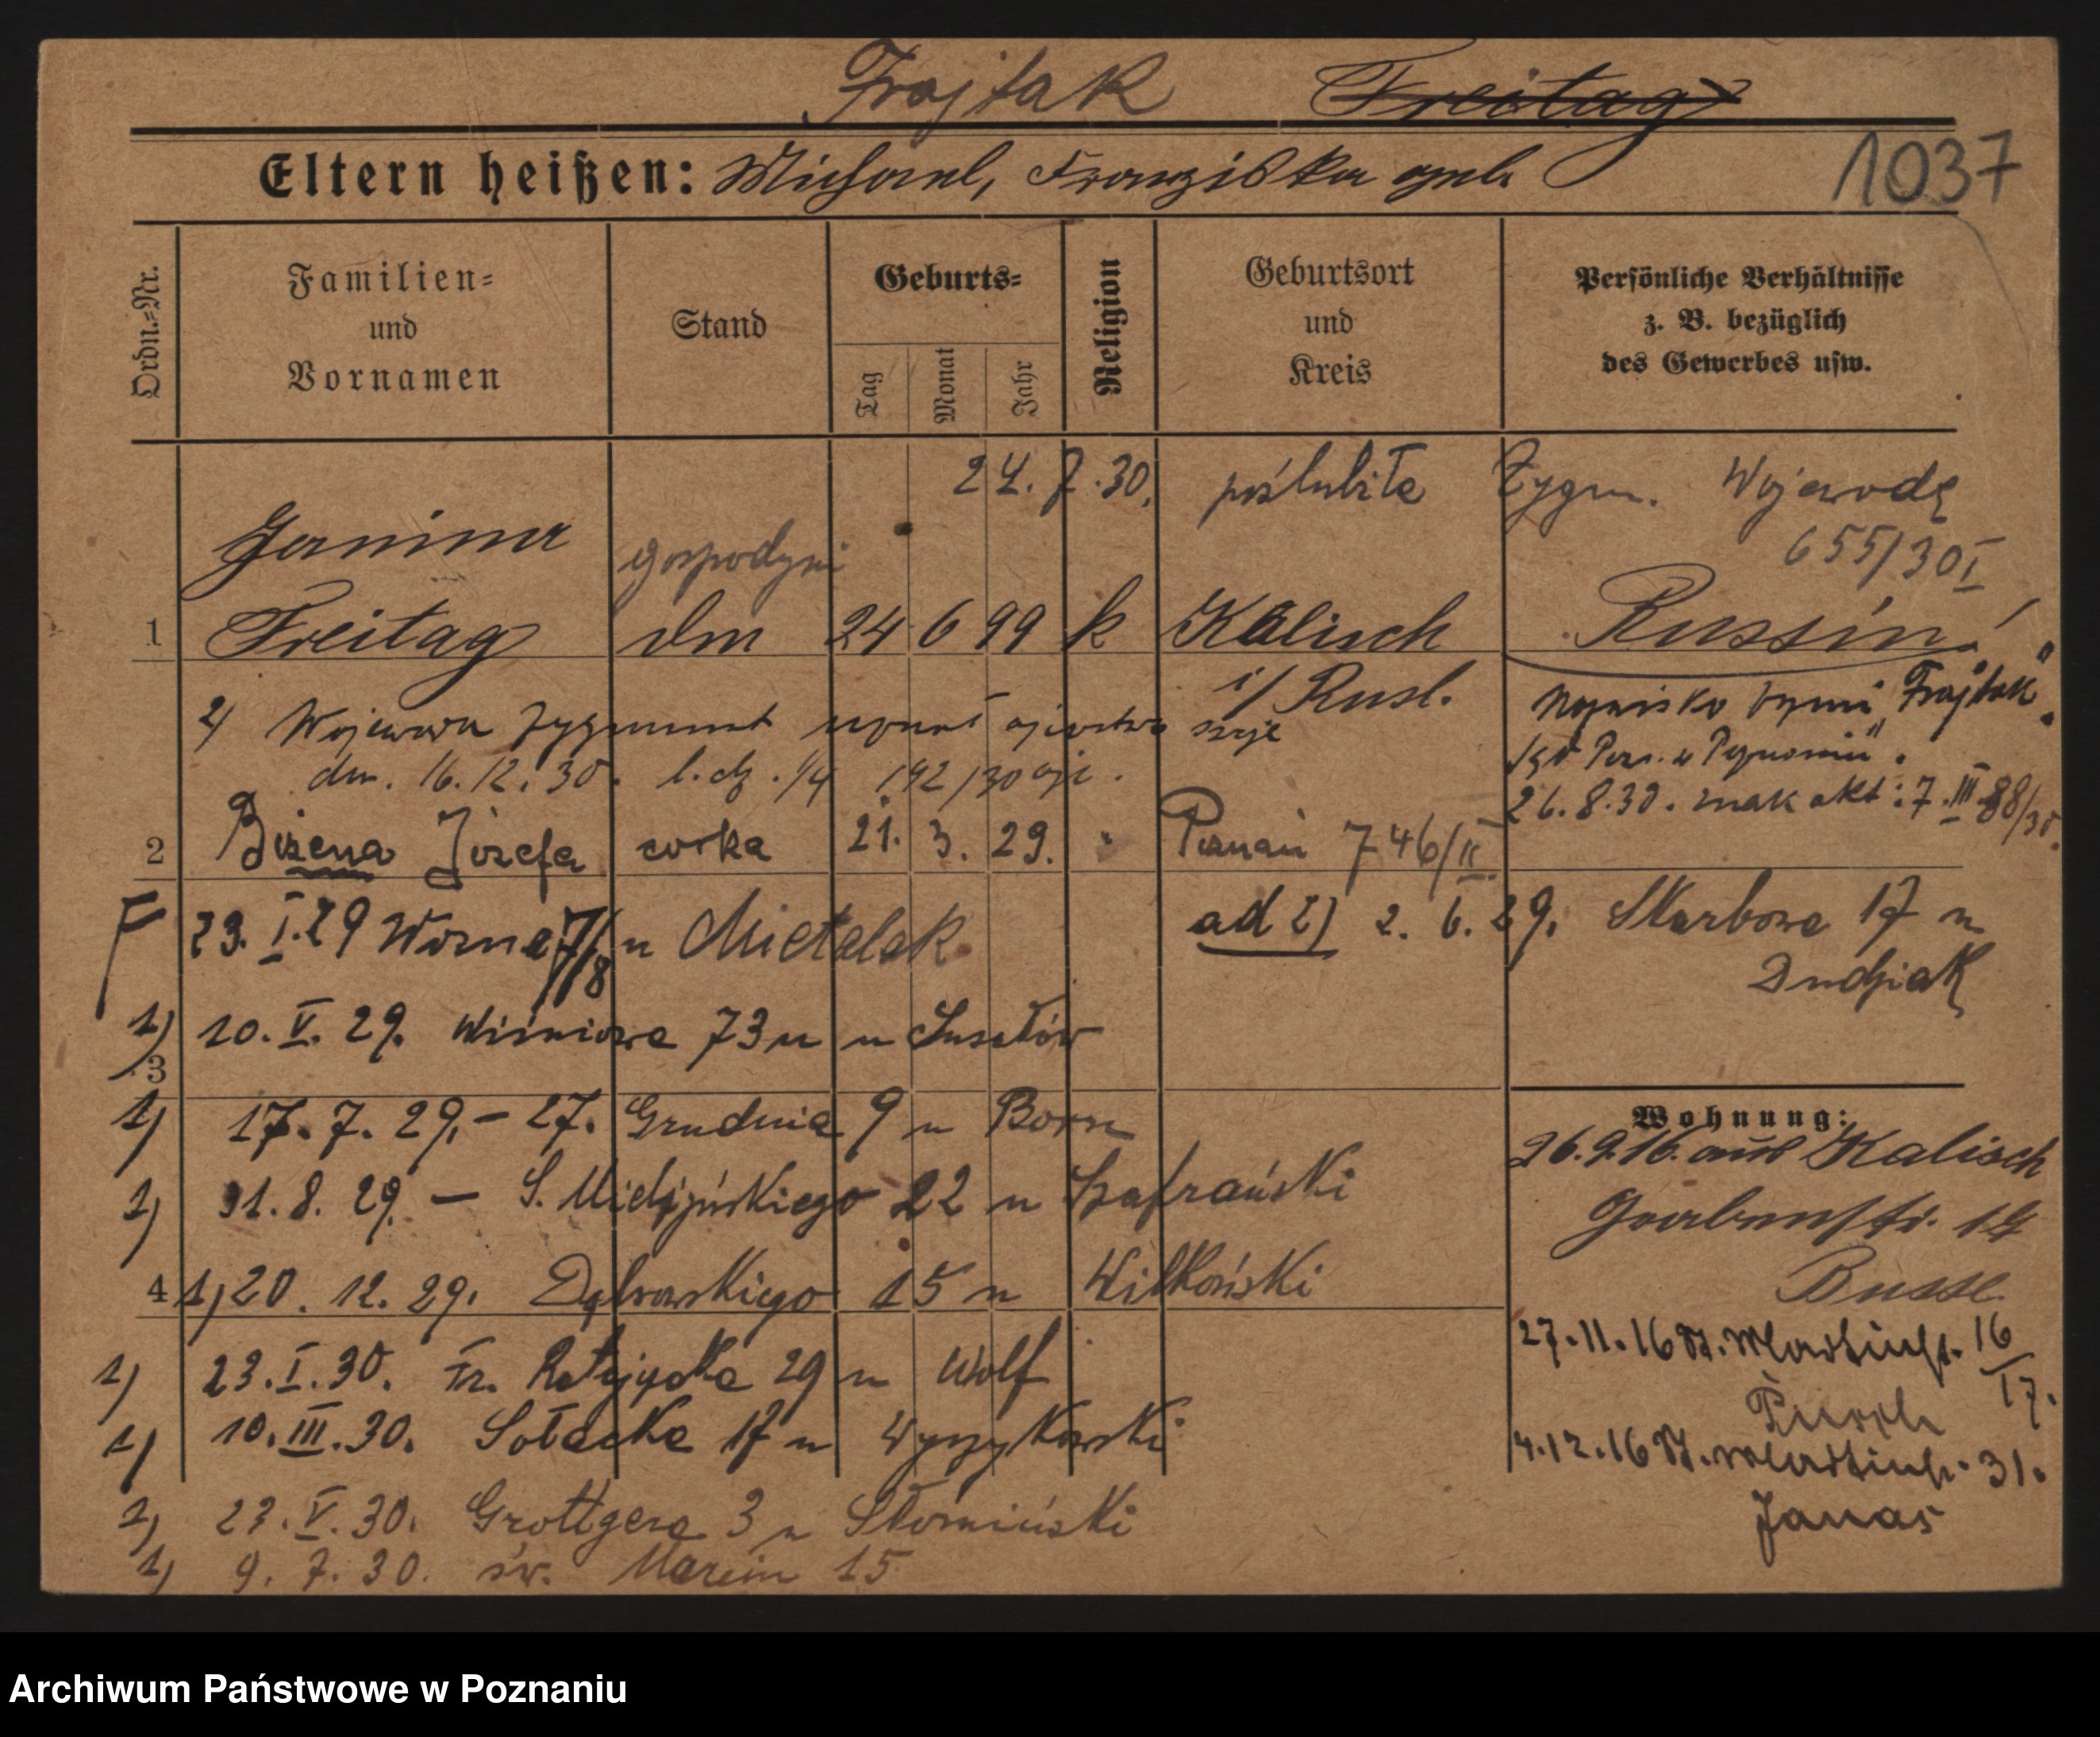 Frajtak Freitag
Eltern heißen: Michael, Franziska geb.
1037
Ordn.=Nr.
Familien=
und
Vornamen
Stand
Geburts=
Tag
Monat
Jahr
Religion
Geburtsort
und
Kreis
Persönliche Verhältnisse
z. B. bezüglich
des Gewerbes usw.
24. 7. 30. poślubiła Zygm. Wojewodę
655/30 I
Janina gospodyni
1 Freitag 24 6 99 k Kalisch Russin
i/ Rusl.
Nazwisko brzmi "Frajtak".
26. 8. 30. znak akt: 7. III 88/30.
2/ Wojewoda Zygmunt uznał ojcostwo swoje
dn. 16. 12. 30. l. dz. 192/30
2 Bożena Józefa córka 21. 3. 29. " Poznań 746/II
F 23. I. 29 Woźna 7/8 u Mietalak
ad 2) 2. 6. 29. Skarbowa 17 u
Dudziak
1) 10. V. 29. Wiśniowa 73 u
3
1) 17. 7. 29. – 27. Grudnia 9 u
1) 31. 8. 29. – S. Mielżyńskiego 22 u Szafrański
4 1) 20. 12. 29. Dąbrowskiego 15 u Wilkoński
1) 23. I. 30. Fr. Ratajczaka 29 u Wolf
1) 10. III. 30. Sołacka 17 u Wyszykowski
1) 23. V. 30. Grottgera 3 u Słomiński
1) 9. 7. 30. św. Marcin 15
Wohnung:
26. 9. 16. aus Kalisch
Grabenstr. 14
Busse
27. 11. 16 St. Martinstr. 16/17.
4. 12. 16 St. Martinstr. 31.
Janas
Archiwum Państwowe w Poznaniu